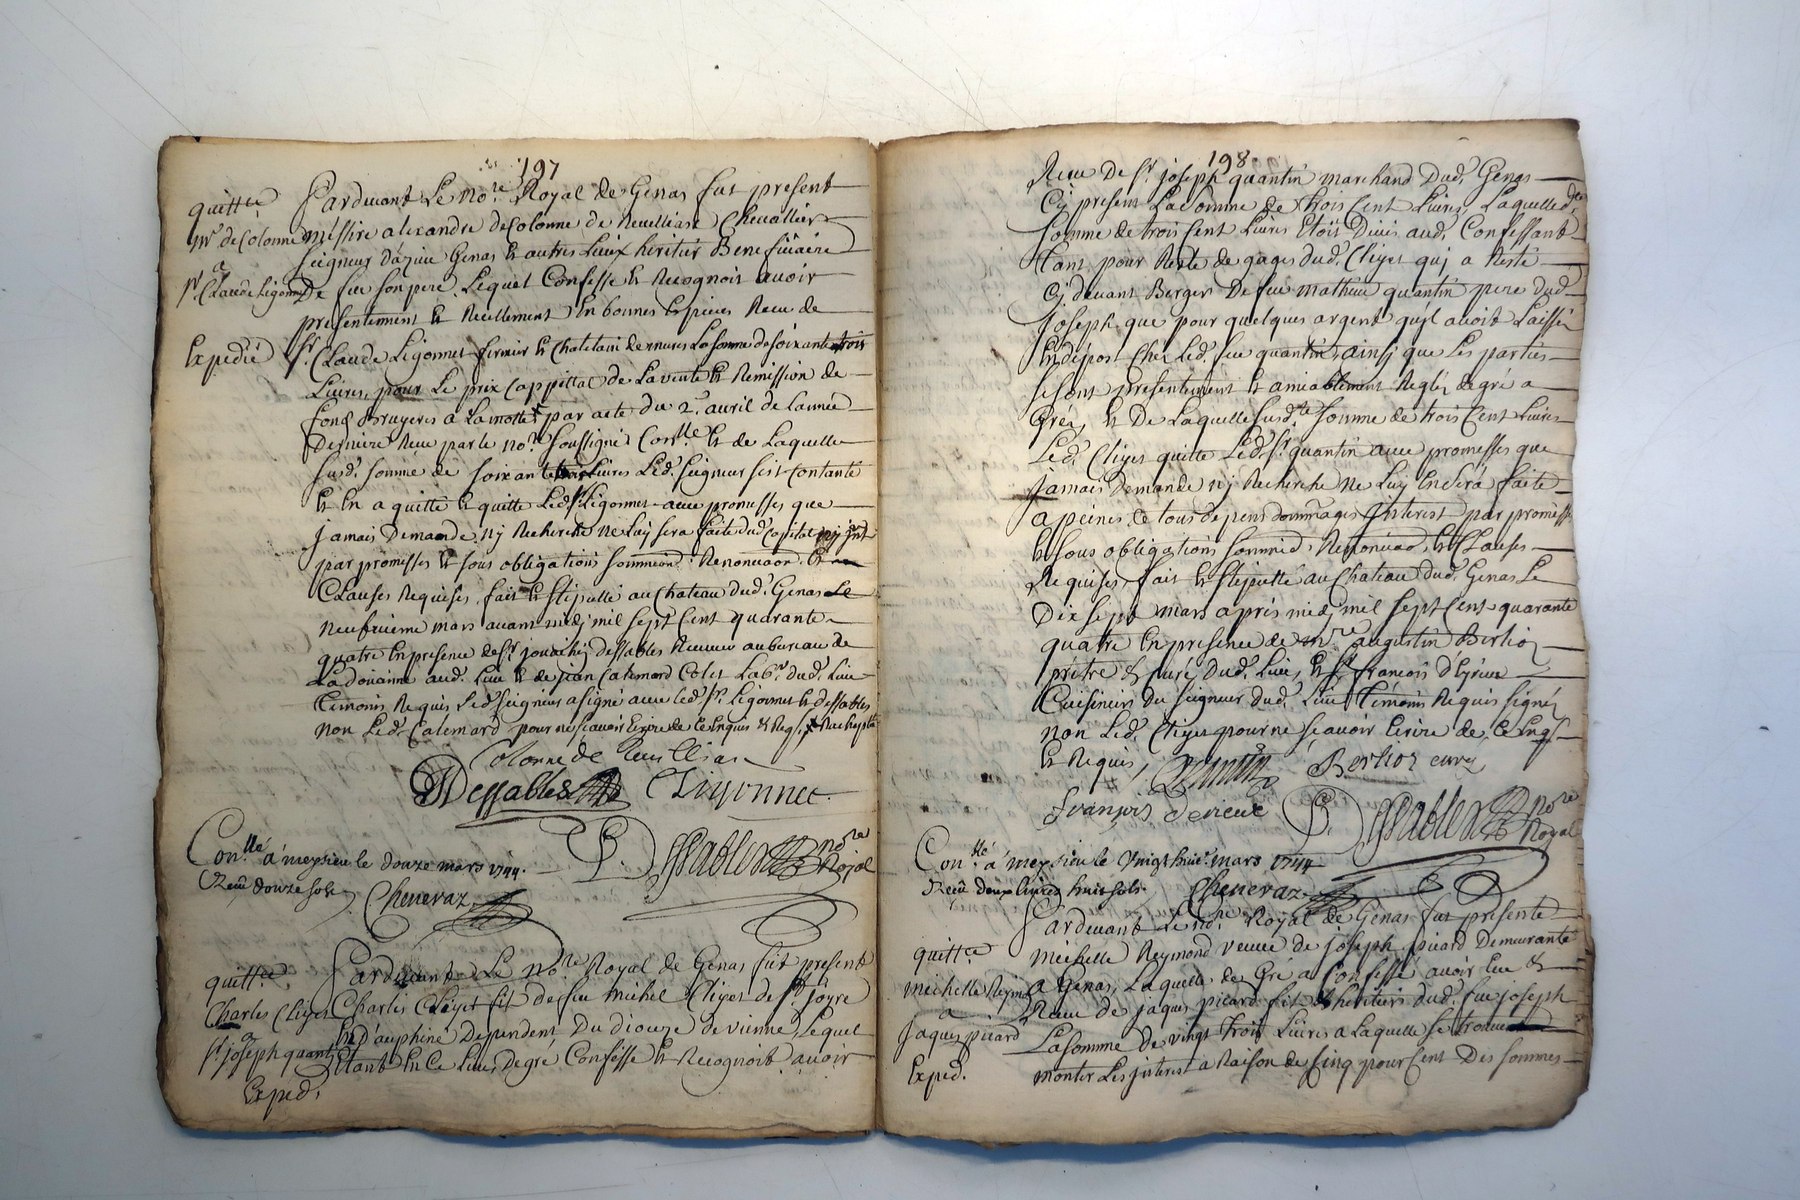 197
quitt.ce
Mr. de Colonne
a
Sr. Claude Ligonnet
Expedié
Pardevant Le No.re Royal de Genas fut present
messire alexandre de Colonne de Chevallier
seigneur d'azieu Genas & autres Lieux heritier Beneficiaire
De feu son pere Lequel Confesse & Recognoit avoir
presentement & Reellement En bonnes Especes Receu de
Sr. Claude Ligonnet fermier & Chatelain de La somme de soixante trois
Livres, pour Le prix Cappittal de La vente & Remission de
fond Bruyeres a Lamotte par acte du 2e. avril de Lannée
Derniere Receu par le No.re soussigné Con.llé & de Laquelle
susd. somme de soixante trois Livres Led. seigneur s'est Contanté
& En a quitté & quitte Led. Sr. Ligonnet avec promesses que
jamais Demande ny Recherche ne Luy sera faite dud. Capital ny Int.
par promesses & sous obligations &
Clauses Requises, fait & stipullé au Chateau dud. Genas Le
Neufvieme mars avant midy mil sept Cent quarante
quatre En presence de Sr. Dessables Receveur au bureau de
La doüanne aud. Lieu & de jean Catemard Lab.r dud. Lieu
temoins Requis Led. seigneur a signé avec led. Sr. Ligonnet & dessables
non Led. Catemard pour ne sçavoir Ecrire de ce Enquis & Req.
Colonne de
Dessables Ligonnet
P. Dessables no.re Royal
Con.llé à meysieu le douze mars 1744.
Receu douze sols Cheneraz
quitt.ce
Charles Cliyet
a
Sr. joseph quantin
Exped.
Pardevant Le No.re Royal de Genas fut present
Charles Cliyet fils de feu michel Cliyet de St. joyre
En dauphiné Dependent Du dioceze de vienne Lequel
Etant En Ce Lieu, de gré Confesse & Recognoit avoir
198
Receu De Sr. joseph quantin marchand Dud. Genas
Cy present La somme de trois Cent Livres Laquelle d.te
somme de trois Cent Livres Etoit Deüe aud. Confessant
tant pour Reste de gages dud. Cliyet qui a Resté
Cy devant Berger De feu mathieu quantin pere dud.
joseph que pour quelques argent quil avoit Laissé
En depost Chez Led. feu quantin, ainsi que Les parties
se sont presentement & amiablement Reglés de gré a
gré, & De Laquelle susd.te somme de trois Cent Livres
Led. Cliyet quitte Led. Sr. quantin avec promesses que
jamais Demande ny Recherche ne Luy En sera faite
a peines de tous depens dommages Interest par promesses
& sous obligations & Clauses
Requises fait & stipullé au Chateau dud. Genas Le
Dix sept mars apres midy mil sept Cent quarante
quatre En presence de m.re augustin Berlioz
prêtre & curé Dud. Lieu, & Sr. francois
Cuisinier du seigneur dud. Lieu temoins Requis signés
non Led. Cliyet pour ne sçavoir Ecrire de Ce Enq.s
& Requis,
quantin Berlioz curé
françois
P. Dessables no.re Royal
Con.llé à meysieu le vingt huit mars 1744
Receu deux livres huit sols Cheneraz
quitt.ce
Michelle Reymond
a
jaques picard
Exped.
Pardevant Le no.re Royal de Genas fut presente
michelle Reymond veuve de joseph picard Demeurante
a Genas, Laquelle de Gré a Confessé avoir Eu &
Receu de jaques picard fils & heritier dud. feu joseph
La somme de vingt trois Livres a Laquelle se trouve
monter Les interest a Raison de Cinq pour Cent Des sommes